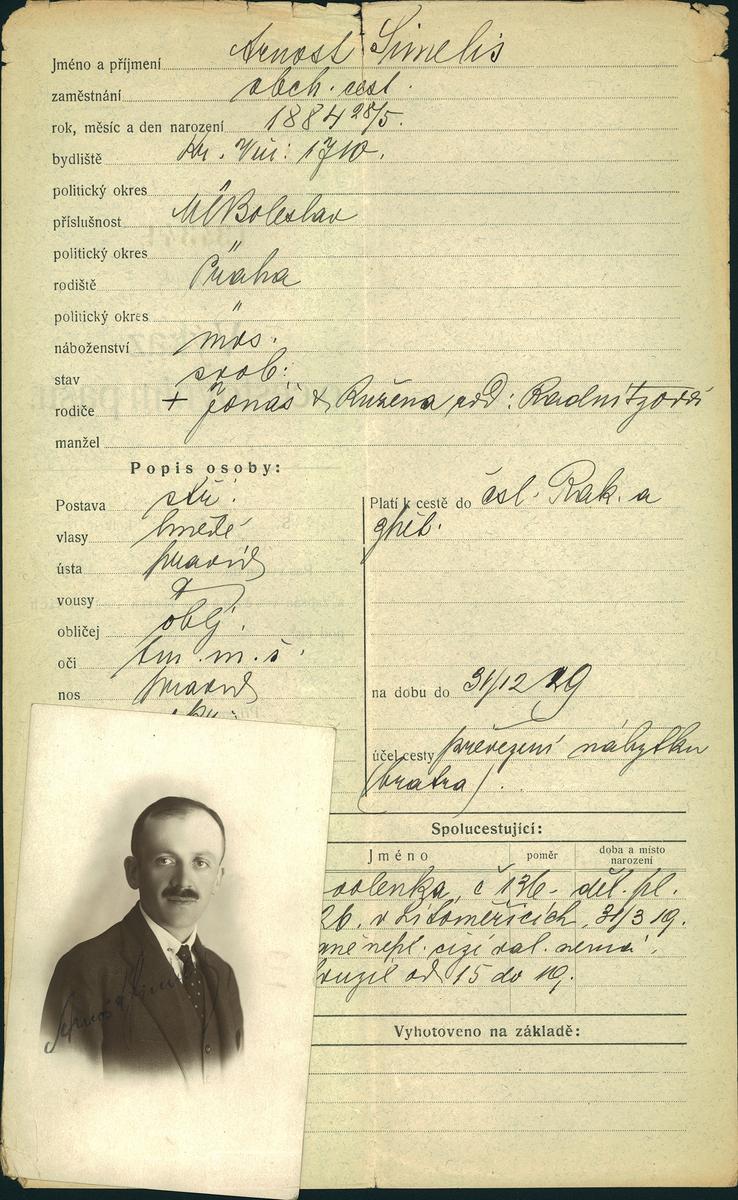 Jméno a příjmení Arnošt Simelis
zaměstnání obch. cest.
rok, měsíc a den narození 1884 28/5.
bydliště Kr. Vin: 1710.
politický okres
příslušnost Ml Boleslav
politický okres "
rodiště Praha
politický okres "
náboženství mos.
stav svob:
rodiče + Jonáš & Růžena roz: Radnitzová
manžel
Popis osoby:
Postava stř.
vlasy hnědé
ústa pravid
vousy
obličej oblj.
oči tm. m. š.
nos pravid
Platí k cestě do čsl. Rak. a
na dobu do 31/12 19
účel cesty převezení nábytku
(bratra).
Spolucestující:
Jméno poměr doba a místo narození
č 136. děl. pl.
26. v Litoměřicích, 31/3 19.
nepl. cizí val. nemá.
od 15 do 19.
Vyhotoveno na základě:
Arnošt